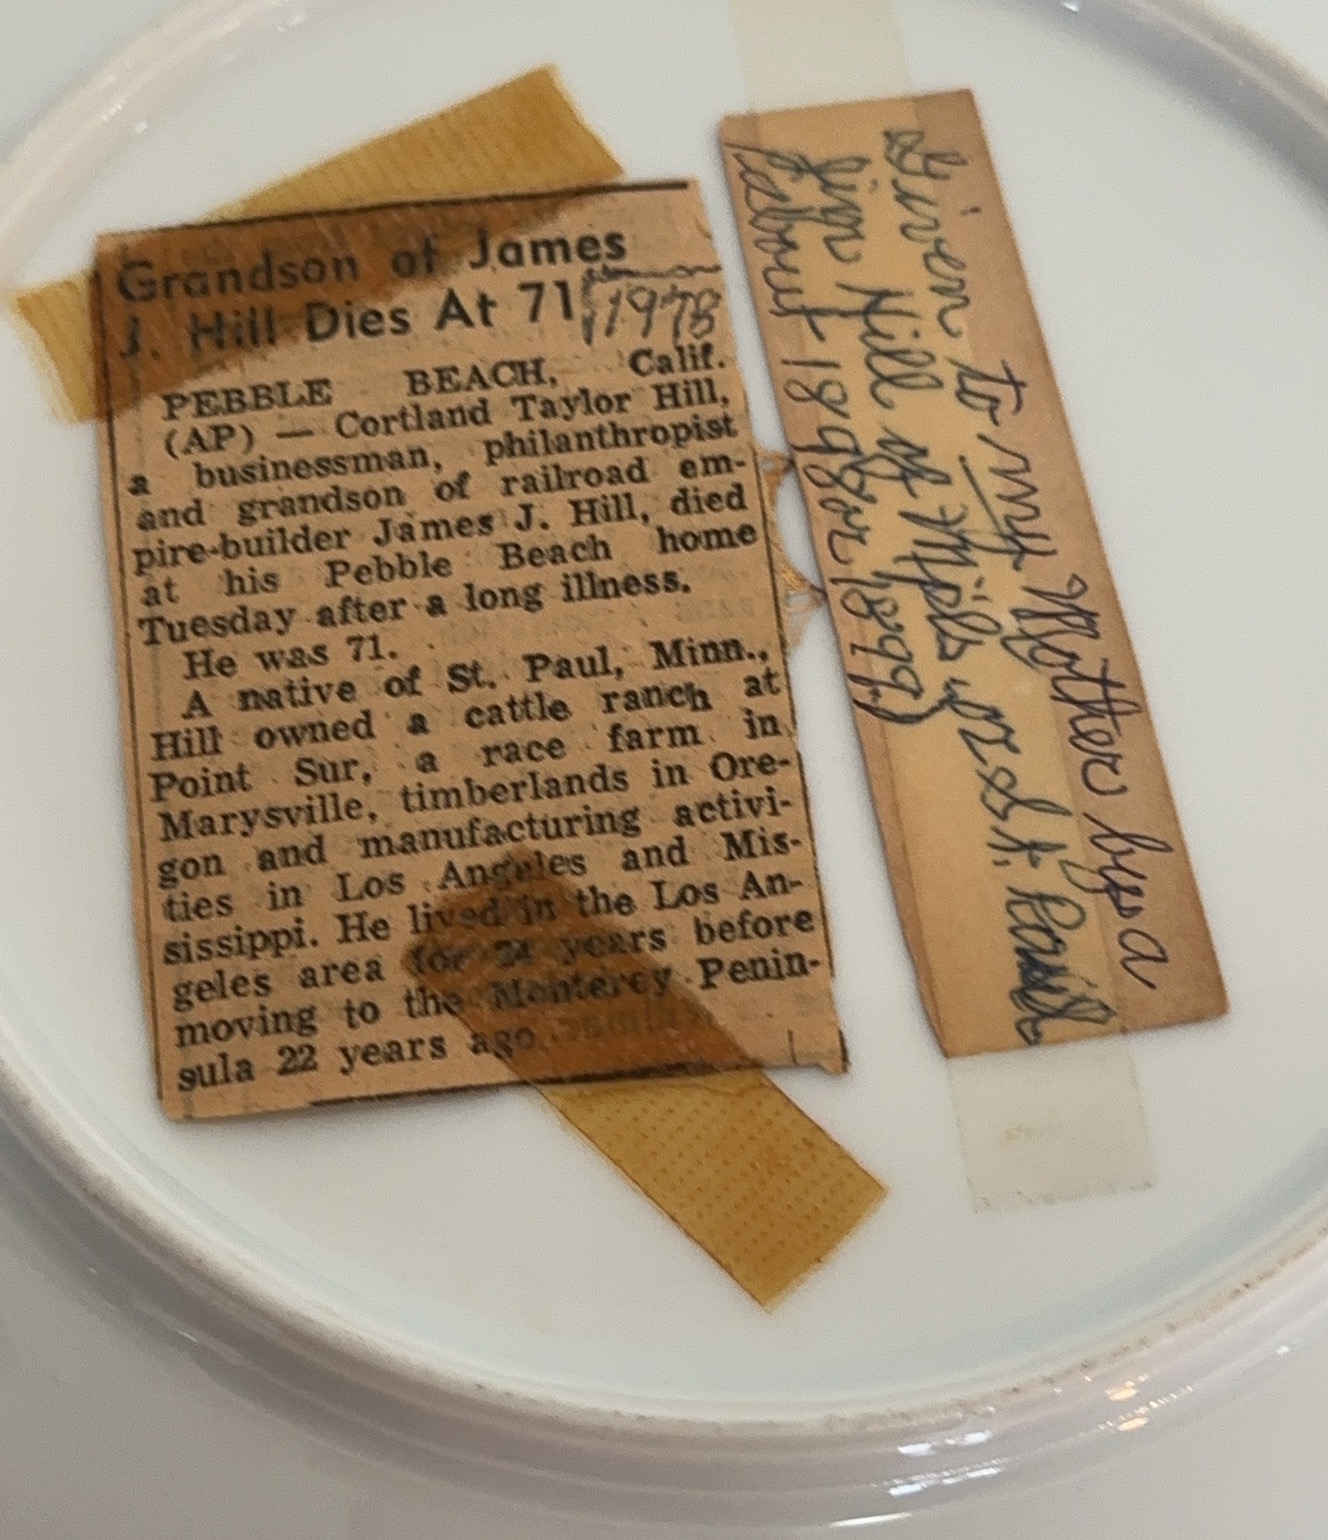 Grandson of James
J. Hill Dies At 71
1978
PEBBLE BEACH, Calif.
(AP) — Cortland Taylor Hill,
a businessman, philanthropist
and grandson of railroad em-
pire-builder James J. Hill, died
at his Pebble Beach home
Tuesday after a long illness.
He was 71.
A native of St. Paul, Minn.,
Hill owned a cattle ranch at
Point Sur, a race farm in
Marysville, timberlands in Ore-
gon and manufacturing activi-
ties in Los Angeles and Mis-
sissippi. He lived in the Los An-
geles area for 24 years before
moving to the Monterey Penin-
sula 22 years ago.
Given to my Mother by a
Jim Hill of Mpls or St. Paul
(about 1898 or 1899)